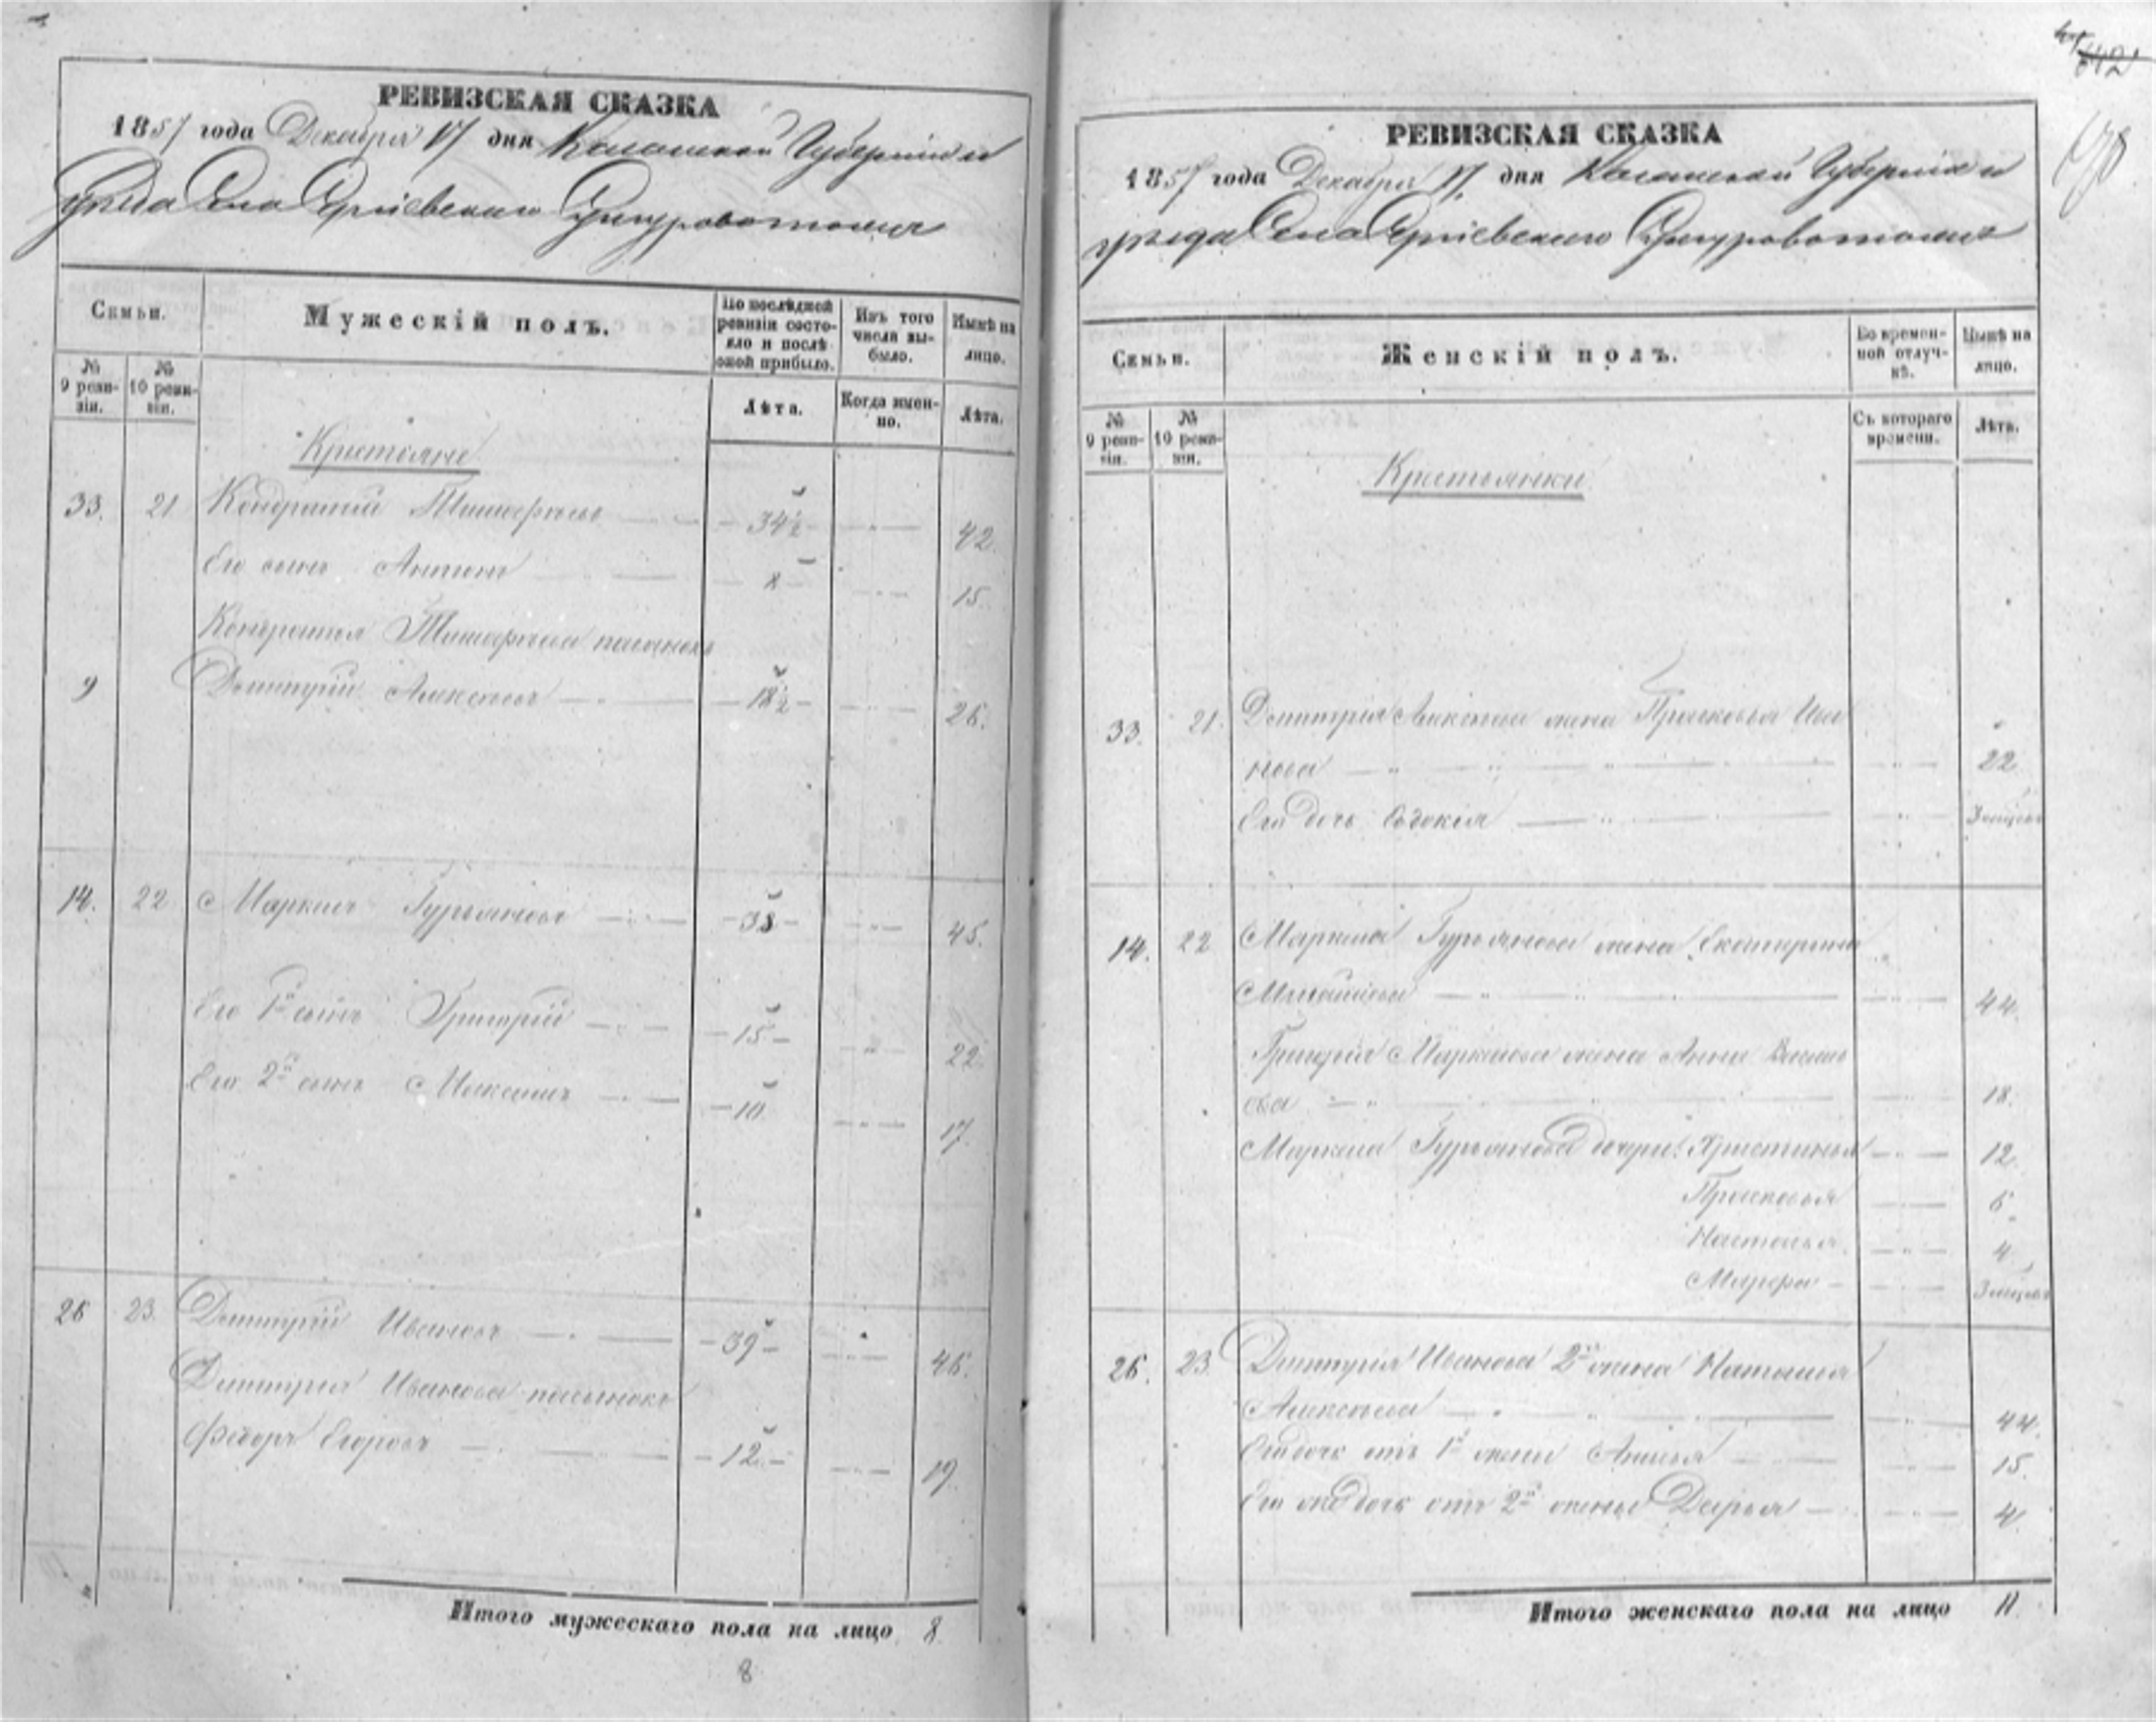 642
РЕВИЗСКАЯ СКАЗКА
1857 года Декабря 17 дня Казанской Губернии и
уѣзда Села
Семьи.
Мужескій полъ.
По послѣдней ревизіи состояло и послѣ оной прибыло.
Изъ того числа выбыло.
Нынѣ на лицо.
№ 9 ревизіи.
№ 10 ревизіи.
Лѣта.
Когда именно.
Лѣта.
Крестьяне
33. 21 Кондратий 34½ 42.
Его сынъ Антонъ 8 15.
Кондратья
9 Дмитрій Алексѣевъ 18½ 26.
14. 22 Маркелъ Гурьяновъ 38 45.
Его 1й сынъ Григорій 15 22.
Его 2й сынъ Максимъ 10 17.
26 23 Дмитрій Ивановъ 39 46.
Дмитрія Иванова пасынокъ
Федоръ Егоровъ 12 19.
Итого мужескаго пола на лицо 8
8
РЕВИЗСКАЯ СКАЗКА
1857 года Декабря 17 дня Казанской Губерніи и
уѣзда Села
Семьи.
Женскій полъ.
Во временной отлучкѣ.
Нынѣ на лицо.
№ 9 ревизіи.
№ 10 ревизіи.
Съ котораго времени.
Лѣта.
Крестьянки
33. 21. Дмитрія Алексѣева жена Прасковья Ива
нова 22
Его дочь Евдокія
14. 22 Маркела Гурьянова жена Екатерина
44.
Григорія Маркелова жена Анна Василь
ева 18.
Маркела Гурьянова дочери: Христинья 12
Прасковья 6
Настасья 4
Марфа
26. 23 Дмитрія Иванова 2я жена Наталья
Алексѣева 44.
Его дочь отъ 1й жены Анисья 15.
Его же дочь отъ 2й жены Дарья 4.
Итого женскаго пола на лицо 11.